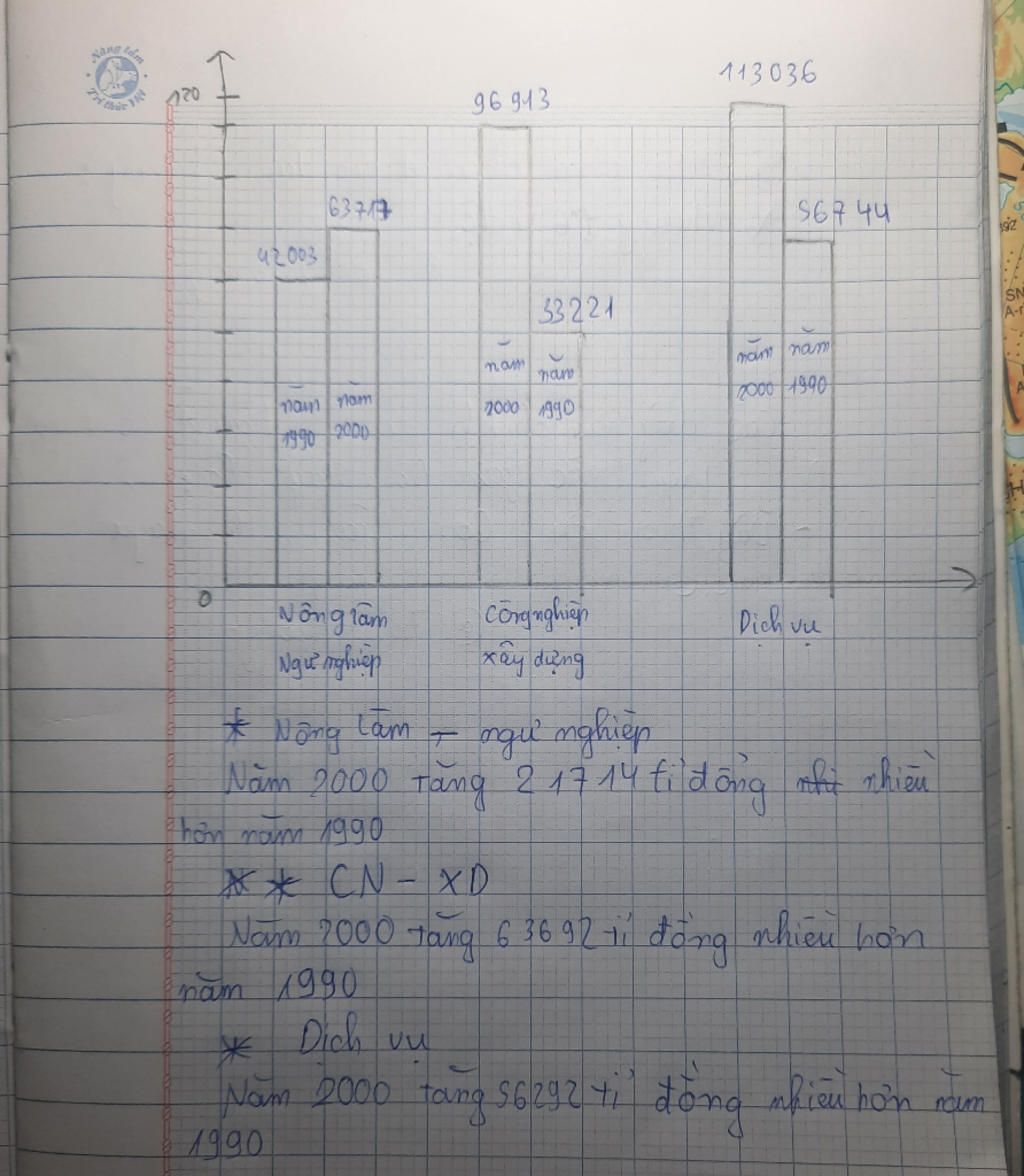 Nâng tầm
Trí thức Việt
120
113036
96913
63717
56744
42003
33221
năm
1990
năm
2000
năm
2000
năm
1990
năm
2000
năm
1990
0
Nông lâm
Ngư nghiệp
Công nghiệp
xây dựng
Dịch vụ
* Nông lâm - ngư nghiệp
Năm 2000 tăng 21714 tỉ đồng nhiều
hơn năm 1990
* * CN - XD
Năm 2000 tăng 63692 tỉ đồng nhiều hơn
năm 1990
* Dịch vụ
Năm 2000 tăng 56292 tỉ đồng nhiều hơn năm
1990